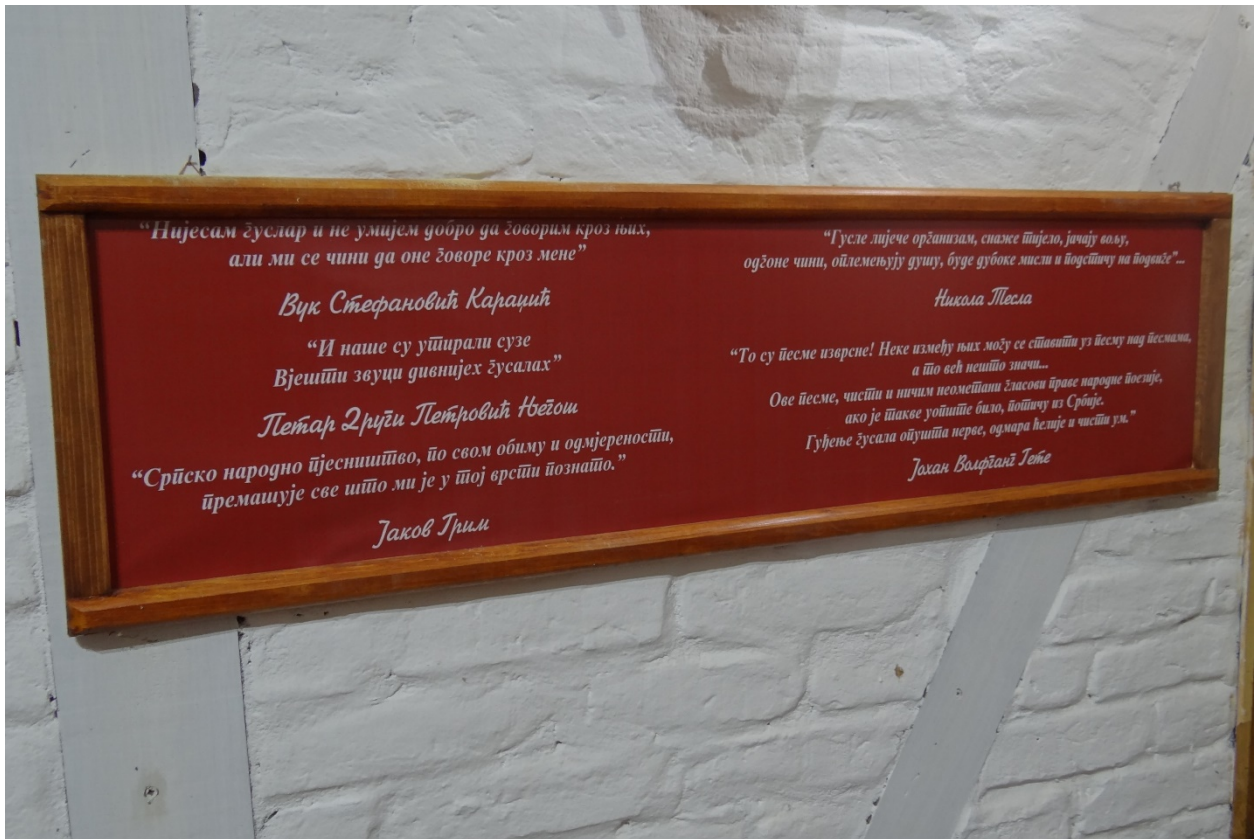 “Нијесам гуслар и не умијем добро да говорим кроз њих,
али ми се чини да оне говоре кроз мене”
Вук Стефановић Караџић
“И наше су утирали сузе
Вјешти звуци дивнијех гусалах”
Петар Други Петровић Његош
“Српско народно пјесништво, по свом обиму и одмјерености,
премашује све што ми је у тој врсти познато.”
Јаков Грим
“Гусле лијече организам, снаже тијело, јачају вољу,
одгоне чини, оплемењују душу, буде дубоке мисли и подстичу на подвиге”...
Никола Тесла
“То су песме изврсне! Неке између њих могу се ставити уз песму над песмама,
а то већ нешто значи...
Ове песме, чисти и ничим неометани гласови праве народне поезије,
ако је такве уопште било, потичу из Србије.
Гуђење гусала опушта нерве, одмара ћелије и чисти ум.”
Јохан Волфганг Гете